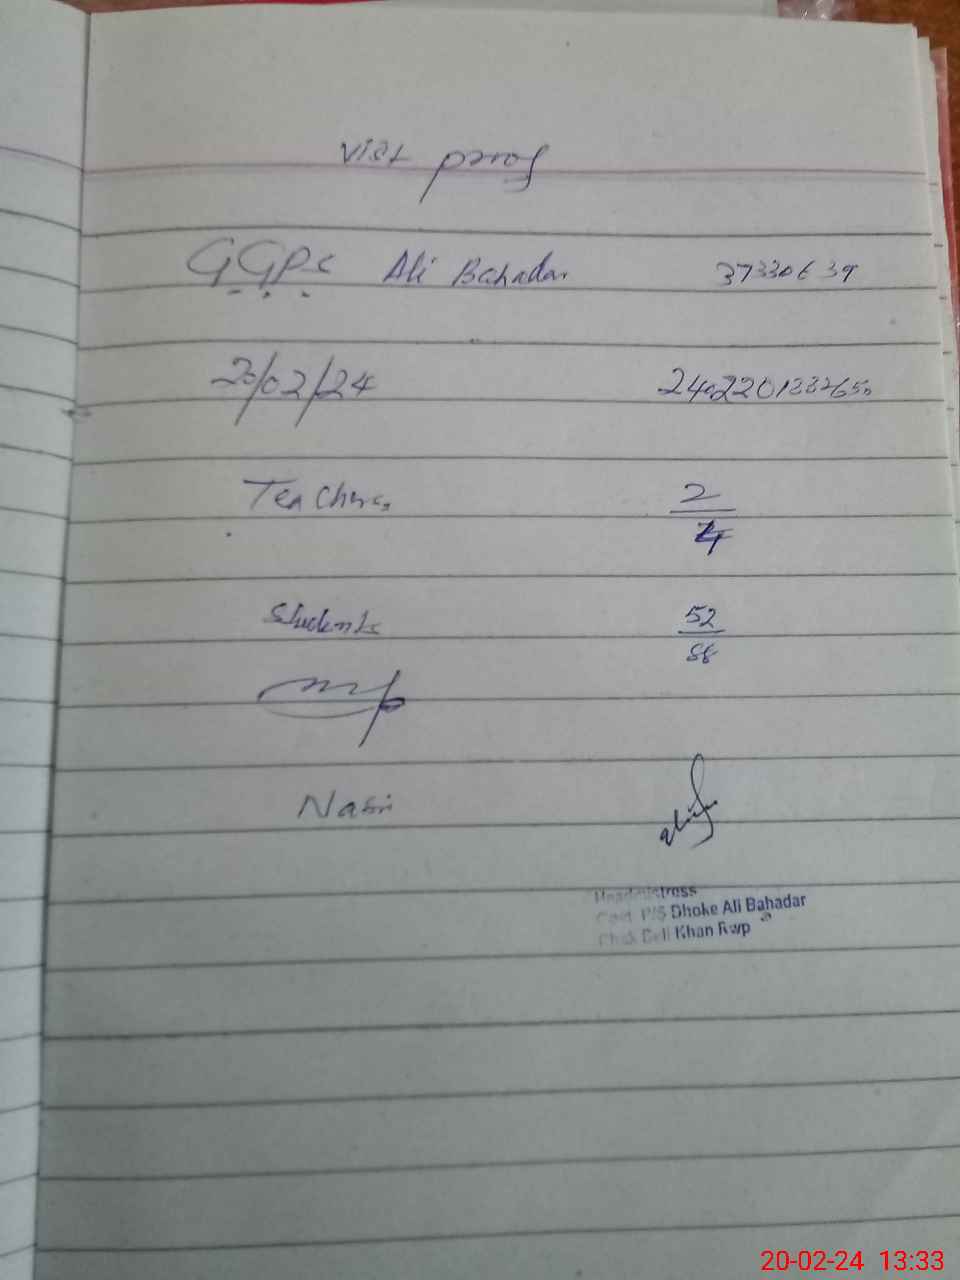 Visit proof
GGPS Ali Bahadar 37330639
20/02/24
Teachers 2/4
Students 52/88
Headmistress
Govt. P/S Dhoke Ali Bahadar
Khan Rwp
20-02-24 13:33